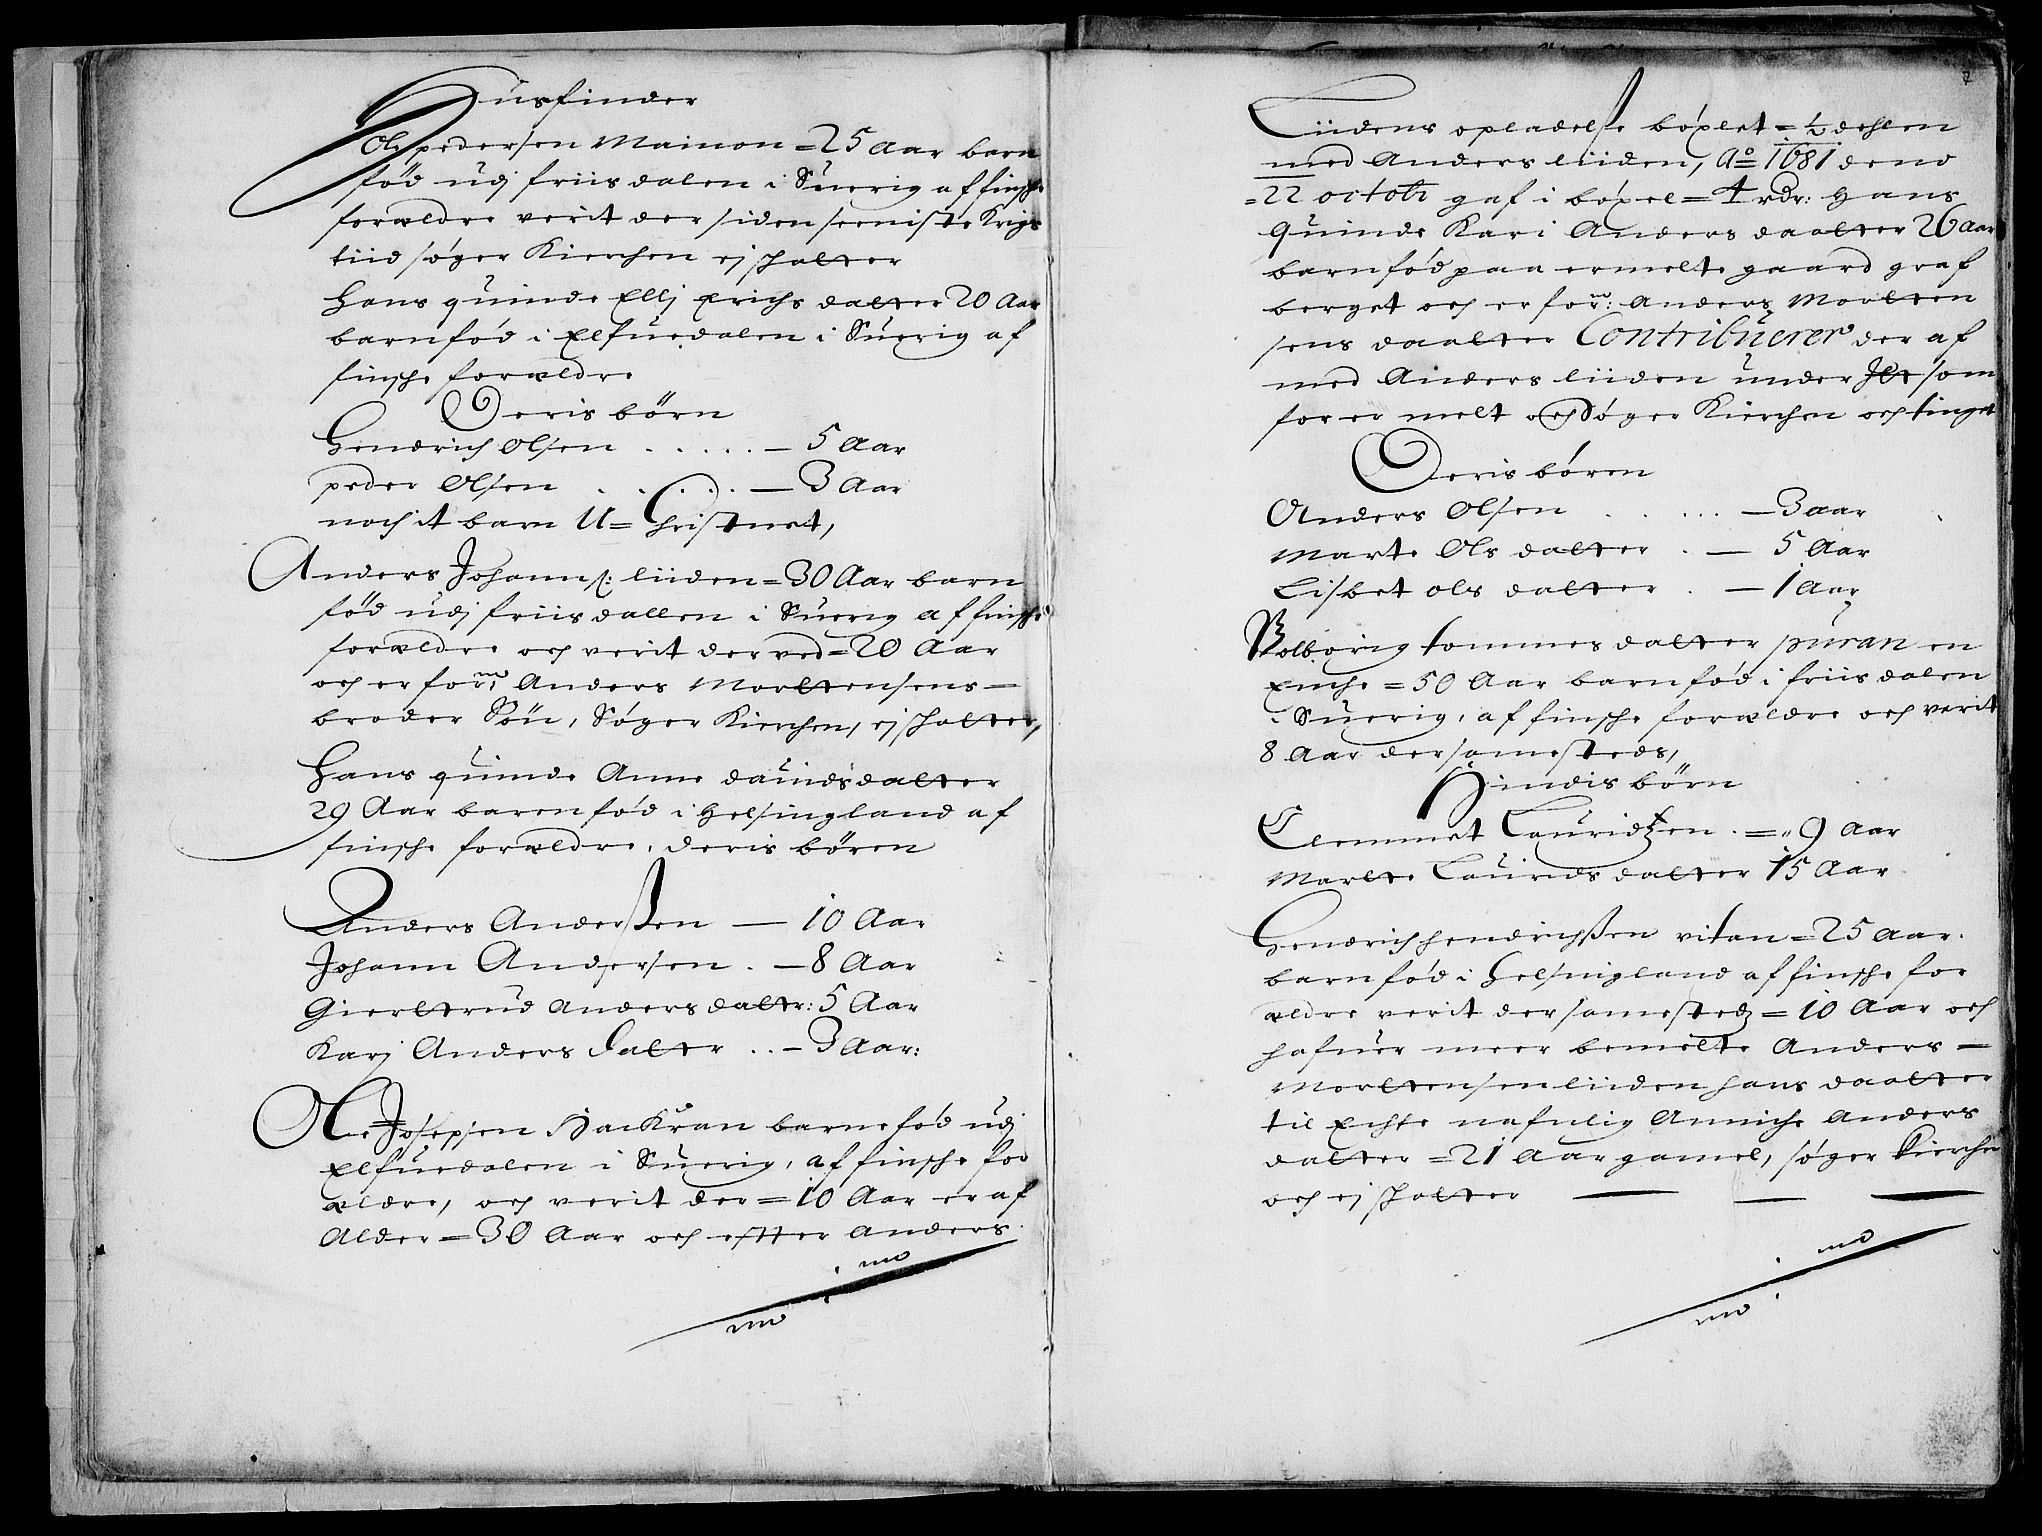 Husfinder
Ole pedersen Mainon = 25 Aar barn
fød udj friisdalen i Suerig af finsche
forældre verit der siden seeniste Krigs
tiid søger Kierchen ej schatter
Hans quinde Ellj Erichs datter 20 Aar
barnfød i Elfuedalen i Suerig af
finsche forældre
Deris børn
Hendrich Olsen . . . . . — 5 Aar
peder Olsen . . . . . — 3 Aar
noch it barn U= Christnet,
Anders Johanns: liiden = 30 Aar barn
fød udj friisdallen i Suerig af finsche
forældre och verit der ved = 20 Aar
och er form: Anders Morttensens —
broder Søn, Søger Kierchen, ej schatter,
Hans quinde Anne dauidsdatter
29 Aar baren fød i Helsingland af
finsche forældre, deris børen
Anders Anderssen — 10 Aar
Johann Andersen . — 8 Aar
Giertrud Anders dattr: 5 Aar
Karj Anders datter . . — 3 Aar:
Ole Josepsen Hackran barnefød udj
Elfuedalen i Suerig, af finsche for
ældre, och verit der = 10 Aar er af
Alder = 30 Aar och efftter Anders
7
Liidens opladelsse bøxlet = 1/2 dehlen
med Anders liiden, Ao 1681 dend
= 22 octobr gaf i bøxel = 4 rdr: Hans
Quinde Kari Anders daatter 26 Aar
barnfød paa ermelte gaard graf
berget och er form: Anders Mortten
sens daatter Contribuerer der af
med Anders liiden under Jtt som
forermelt och Søger Kierchen och tinget
Deris børen
Anders Olsen . . . . . — 3 aar
Marte Ols datter . — 5 Aar
Lisbet ols datter . — 1 Aar
Wolborig tommes datter puran en
Enche = 50 Aar barnfød i friisdalen
i Suerig, af finsche forældre och verit
8 Aar dersamesteds,
Hindis børn
Clemmet Lauridtzen . = 9 Aar
Marte Laurids datter 15 Aar
Hendrich hendrichssen vitan = 25 aar.
barnfød i Helsingland af finsche for
ældre verit dersamestedz = 10 Aar och
hafuer meer bemelte Anders —
Morttensen liiden hans daatter
til Echte nafnlig Anniche Anders
datter = 21 Aar gamel, søger Kierchen
och ej schatter